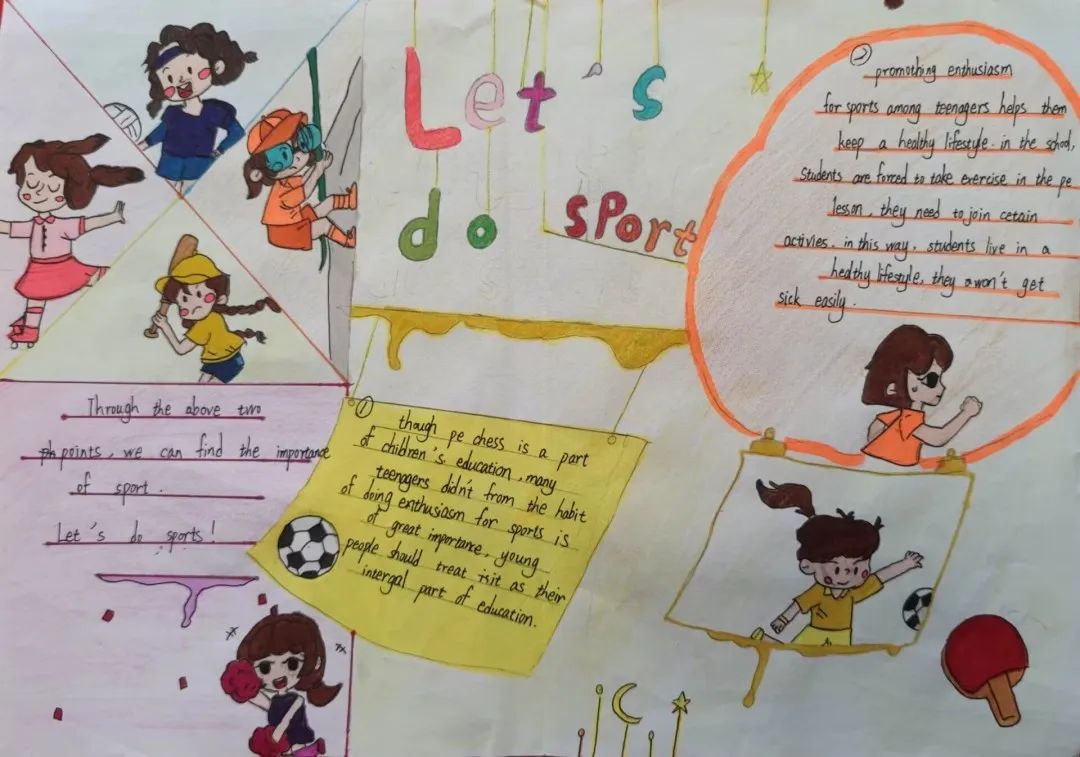 Let's
do sport
① though pe chess is a part
of children's education, many
teenagers didn't from the habit
of doing enthusiasm for sports is
of great importance, young
people should treat it as their
intergal part of education.
② promothing enthusiasm
for sports among teenagers helps them
keep a healthy lifestyle. in the school,
students are forced to take exercise in the pe
lesson, they need to join cetain
activies. in this way, students live in a
healthy lifestyle, they won't get
sick easily.
Through the above two
points, we can find the importance
of sport.
Let's do sports!